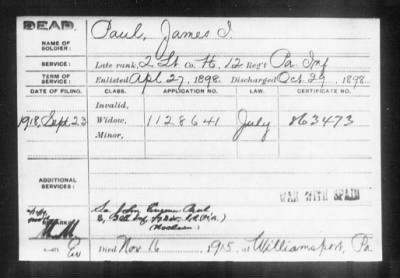 DEAD.
NAME OF SOLDIER: Paul, James I.
SERVICE: Late rank, 2 Lt Co. H, 12 Reg't Pa Inf
TERM OF SERVICE: Enlisted Apl 27, 1898. Discharged Oct 29, 1898.
DATE OF FILING. CLASS. APPLICATION NO. LAW. CERTIFICATE NO.
Invalid,
1918, Sept 23 Widow, 1128641 July 863473
Minor,
ADDITIONAL SERVICES:
WAR WITH SPAIN
So John Eugene Paul
Died Nov 16, 1915, at Williamsport, Pa